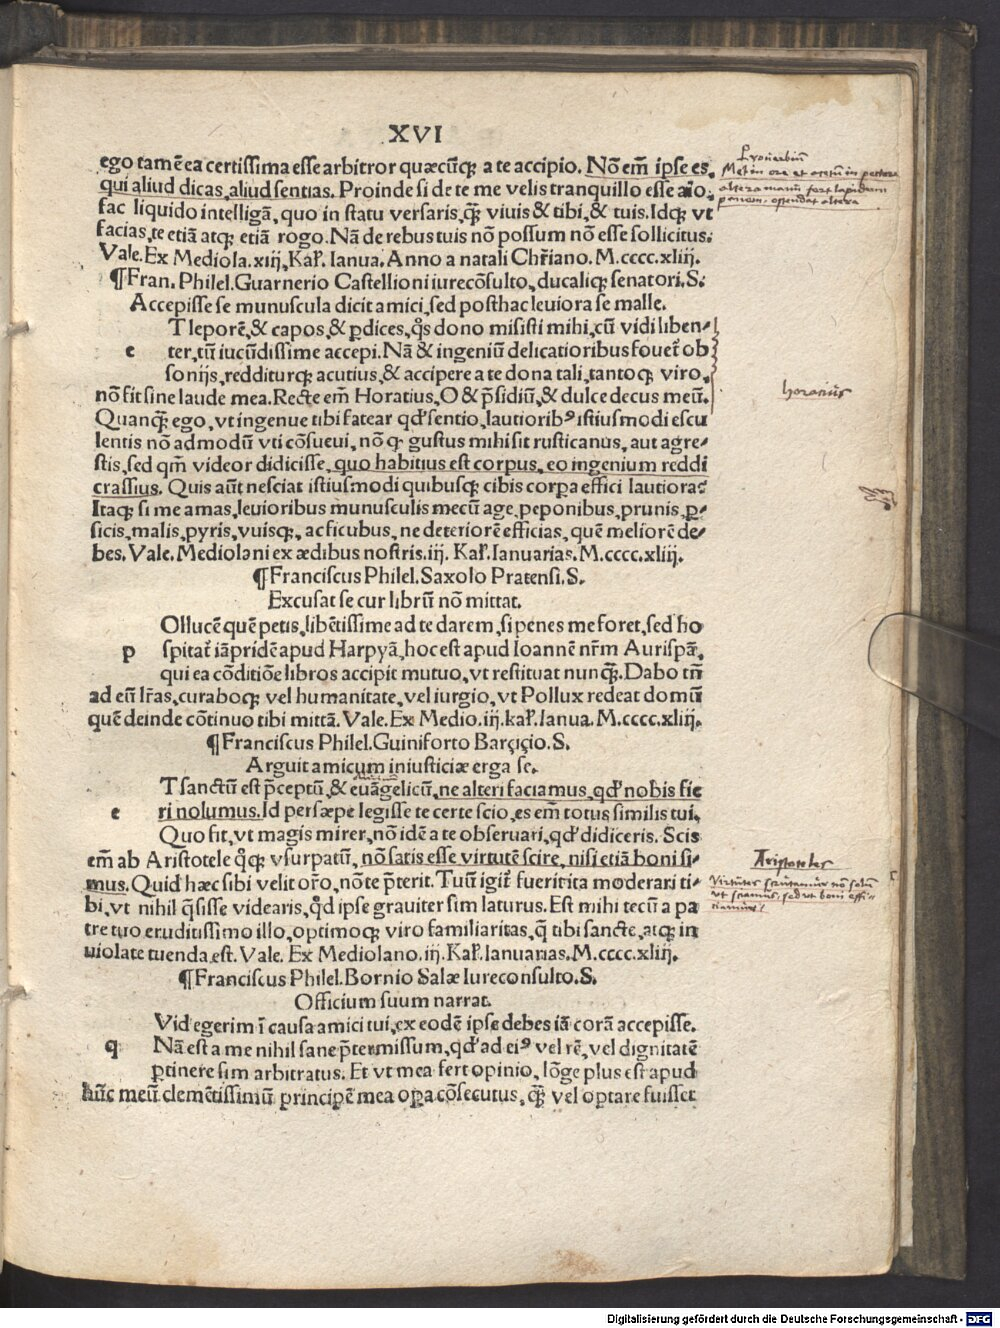 XVI
ego tamē ea certissima esse arbitror quæcūq; a te accipio. Nō em̄ ipse es,
qui aliud dicas, aliud sentias. Proinde si de te me velis tranquillo esse aīo,
fac liquido intelligā, quo in statu versaris, q̄ viuis & tibi, & tuis. Idq; vt
facias, te etiā atq; etiā rogo. Nā de rebus tuis nō possum nō esse sollicitus.
Vale. Ex Mediola. xiij. Kal. Ianua. Anno a natali Chr̄iano. M.cccc.xliij.
¶Fran. Philel. Guarnerio Castellioni iurecōsulto, ducaliq; senatori. S.
Accepisse se munuscula dicit amici, sed posthac leuiora se malle.
e Tleporē, & capos, & ꝑdices, q̄s dono misisti mihi, cū vidi liben⸗
ter, tū iucūdissime accepi. Nā & ingeniū delicatioribus fouet̄ ob
sonijs, redditurq; acutius, & accipere a te dona tali, tantoq; viro,
nō fit sine laude mea. Recte em̄ Horatius, O & p̄sidiū, & dulce decus meū.
Quanq̄ ego, vt ingenue tibi fatear qd' sentio, lautiorib⁹ istiusmodi escu
lentis nō admodū vti cōsueui, nō ꝙ gustus mihi sit rusticanus, aut agre⸗
stis, sed qm̄ videor didicisse, quo habitius est corpus, eo ingenium reddi
crassius. Quis aūt nesciat istiusmodi quibusq; cibis corꝑa effici lautiora?
Itaq; si me amas, leuioribus munusculis mecū age, peponibus, prunis, ꝑ⸗
sicis, malis, pyris, vuisq;, ac ficubus, ne deteriorē efficias, quē meliorē de⸗
bes. Vale. Mediolani ex ædibus nostris. iij. Kal. Ianuarias. M.cccc.xliij.
¶Franciscus Philel. Saxolo Pratensi. S.
Excusat se cur librū nō mittat.
p Ollucē quē petis, libētissime ad te darem, si penes me foret, sed ho
spitat̄ iāpridē apud Harpyā, hoc est apud Ioannē nr̄m Aurispā,
qui ea cōditiōe libros accipit mutuo, vt restituat nunq̄. Dabo tn̄
ad eū lr̄as, curaboq; vel humanitate, vel iurgio, vt Pollux redeat domū
quē deinde cōtinuo tibi mittā. Vale. Ex Medio. iij. kal. Ianua. M.cccc.xliij.
¶Franciscus Philel. Guiniforto Barçiçio. S.
Arguit amicum iniusticiæ erga se.
e Tsanctū est p̄ceptū, & euāgelicū, ne alteri faciamus, qd' nobis fie
ri nolumus. Id persæpe legisse te certe scio, es em̄ totus similis tui.
Quo fit, vt magis mirer, nō idē a te obseruari, qd' didiceris. Scis
em̄ ab Aristotele q̊q; vsurpatū, nō satis esse virtutē scire, nisi etiā boni si⸗
mus. Quid hæc sibi velit or̄o, nō te p̄terit. Tuū igit̄ fuerit ita moderari ti⸗
bi, vt nihil q̄sisse videaris, q̊d ipse grauiter sim laturus. Est mihi tecū a pa
tre tuo eruditissimo illo, optimoq; viro familiaritas, q̄ tibi sancte, atq; in
uiolate tuenda est. Vale. Ex Mediolano. iij. Kal. Ianuarias. M.cccc.xliij.
¶Franciscus Philel. Bornio Salæ Iureconsulto. S.
Officium suum narrat.
q Vid egerim ī causa amici tui, ex eodē ipse debes iā corā accepisse.
Nā est a me nihil sane p̄termissum, qd' ad ei⁹ vel rē, vel dignitatē
ꝑtinere sim arbitratus. Et vt mea fert opinio, lōge plus est apud
hūc meū clemētissimū principē mea oꝑa cōsecutus, q̄ vel optare fuisset
Prouerbiū
Mel in ore et acetū in pectore
altera manū fert lapidem
panem ostendat altera
horatius
Aristoteles
Virtutes scrutamur nō solū
vt sciamus, sed vt boni effi⸗
ciamur.
Digitalisierung gefördert durch die Deutsche Forschungsgemeinschaft - DFG